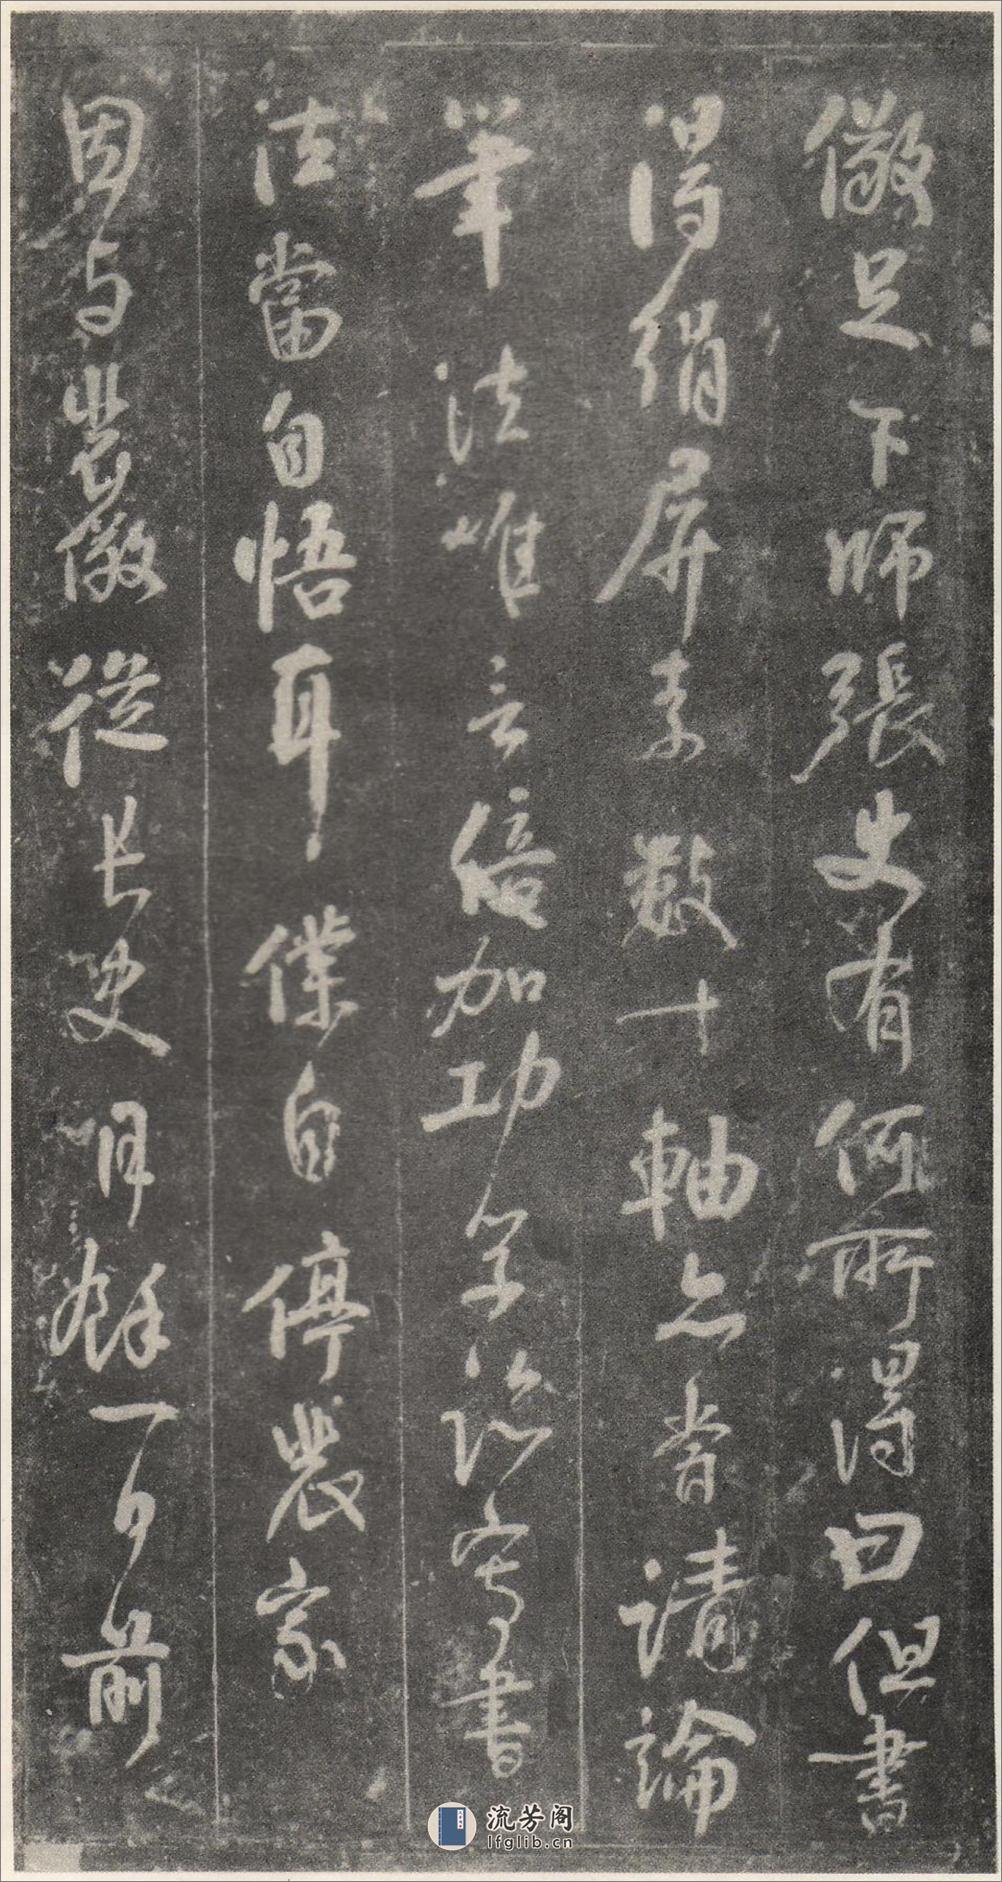 儆足下師張史有何所得曰但書
得絹屏素數十軸亦嘗請論
筆法惟言倍加功學臨寫書
法當自悟耳僕自停裴家
因与裴儆從長史月餘一日前
流芳阁
lfglib.cn